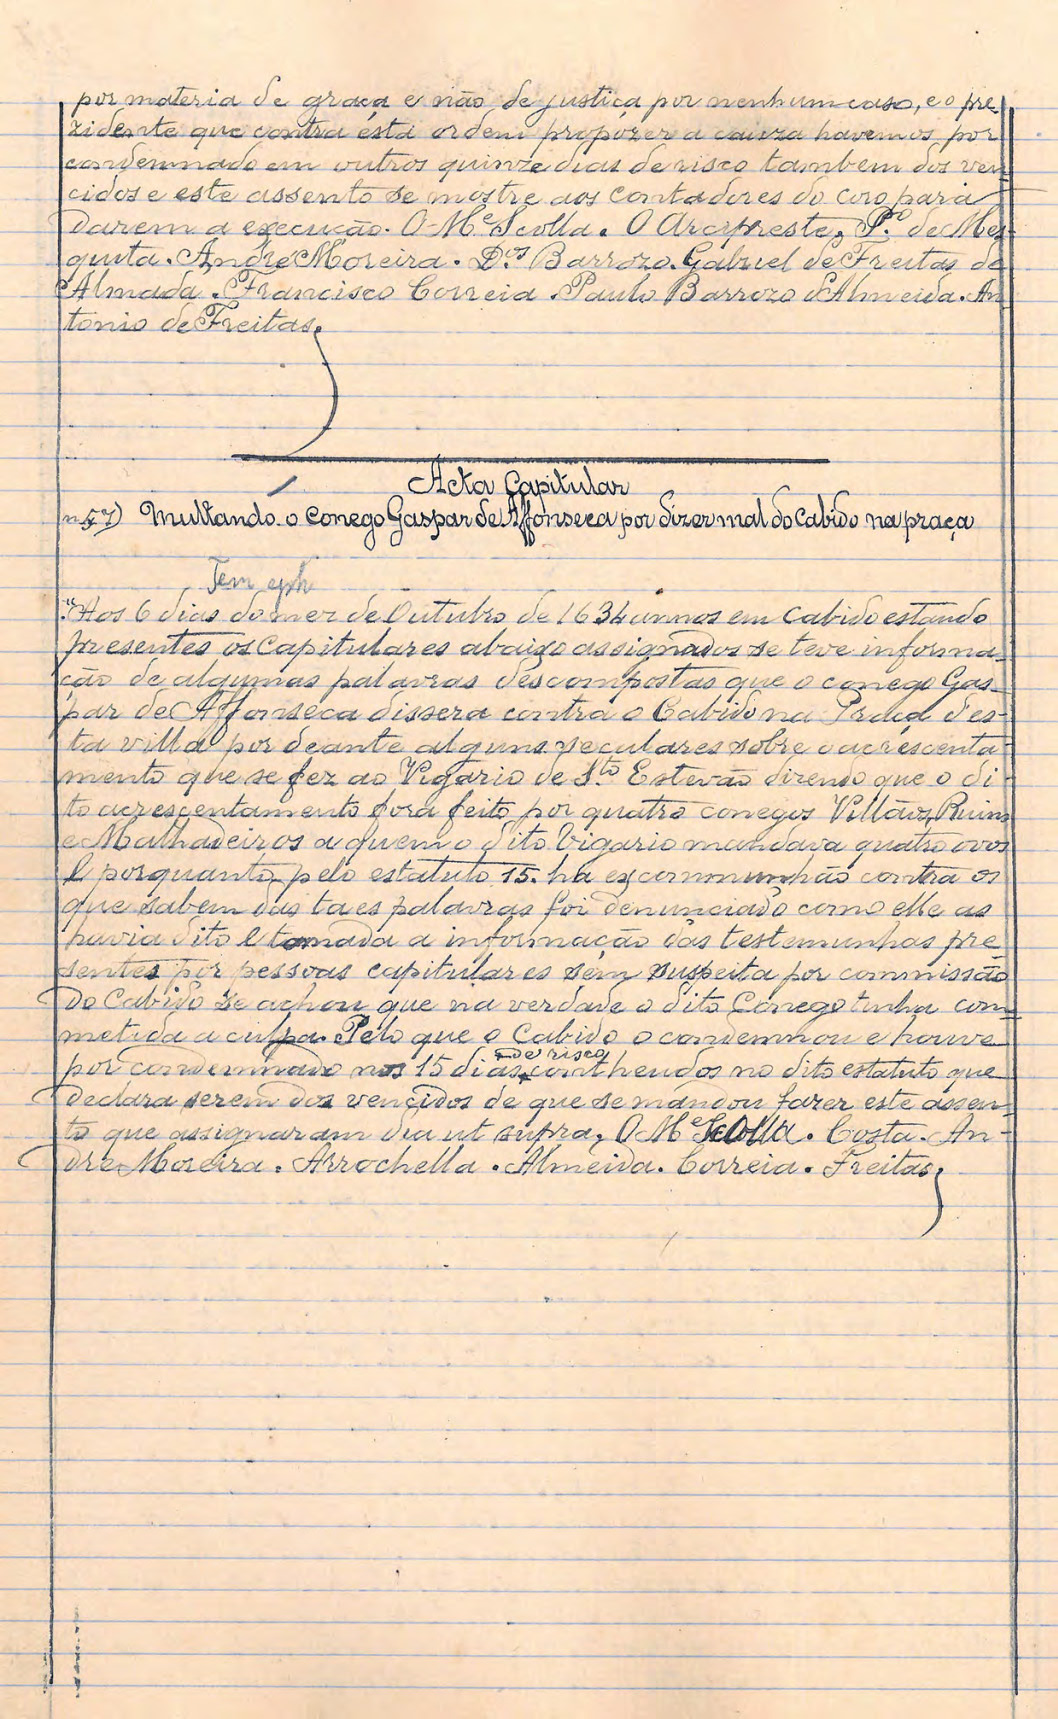 por materia de graça e não de justiça por nenhum caso, e o pre
zidente que contra esta ordem propózer a cauza havemos por
condemnado em outros quinze dias de risco tambem dos ven
cidos e este assento se mostre aos contadores do coro para
darem a execução. O M.e Scolla. O Arcypreste, P.o de Mes-
quita. André Moreira. D.os Barrozo. Gabriel de Freitas de
Almada. Francisco Correia. Paulo Barrozo d'Almeida. An
tonio de Freitas.
Acta Capitular
n.57) Multando o conego Gaspar de Affonseca por dizer mal do Cabido na praça
Tem
"Aos 6 dias do mez de Outubro de 1634 annos em Cabido estando
presentes os Capitulares abaixo assignados se teve informa-
ção de algumas palavras descompostas que o conego Gas-
par de Affonseca dissera contra o Cabido na Praça d'es-
ta villa por deante alguns seculares sobre o acrescenta-
mento que se fez ao Vigario de S.to Estevão dizendo que o di-
to acrescentamento fora feito por quatro conegos Villãos, Ruins
e Malhadeiros a quem o dito Vigario mandava quatro ovos
E porquanto pelo estatuto 15. ha excommunhão contra os
que sabem das taes palavras foi denunciado como elle as
havia dito E tomada a informação das testemunhas pre
sentes por pessoas capitulares sem suspeita por commissão
do Cabido se achou que na verdade o dito Conego tinha com-
metida a culpa. Pelo que o Cabido o condemnou e houve
por condemnado nos 15 dias de risco contheudos no dito estatuto que
declara serem dos vencidos de que se mandou fazer este assen-
to que assignaram dia ut supra, O M.e Scolla. Costa. An-
dre Moreira. Arrochella. Almeida. Correia. Freitas,